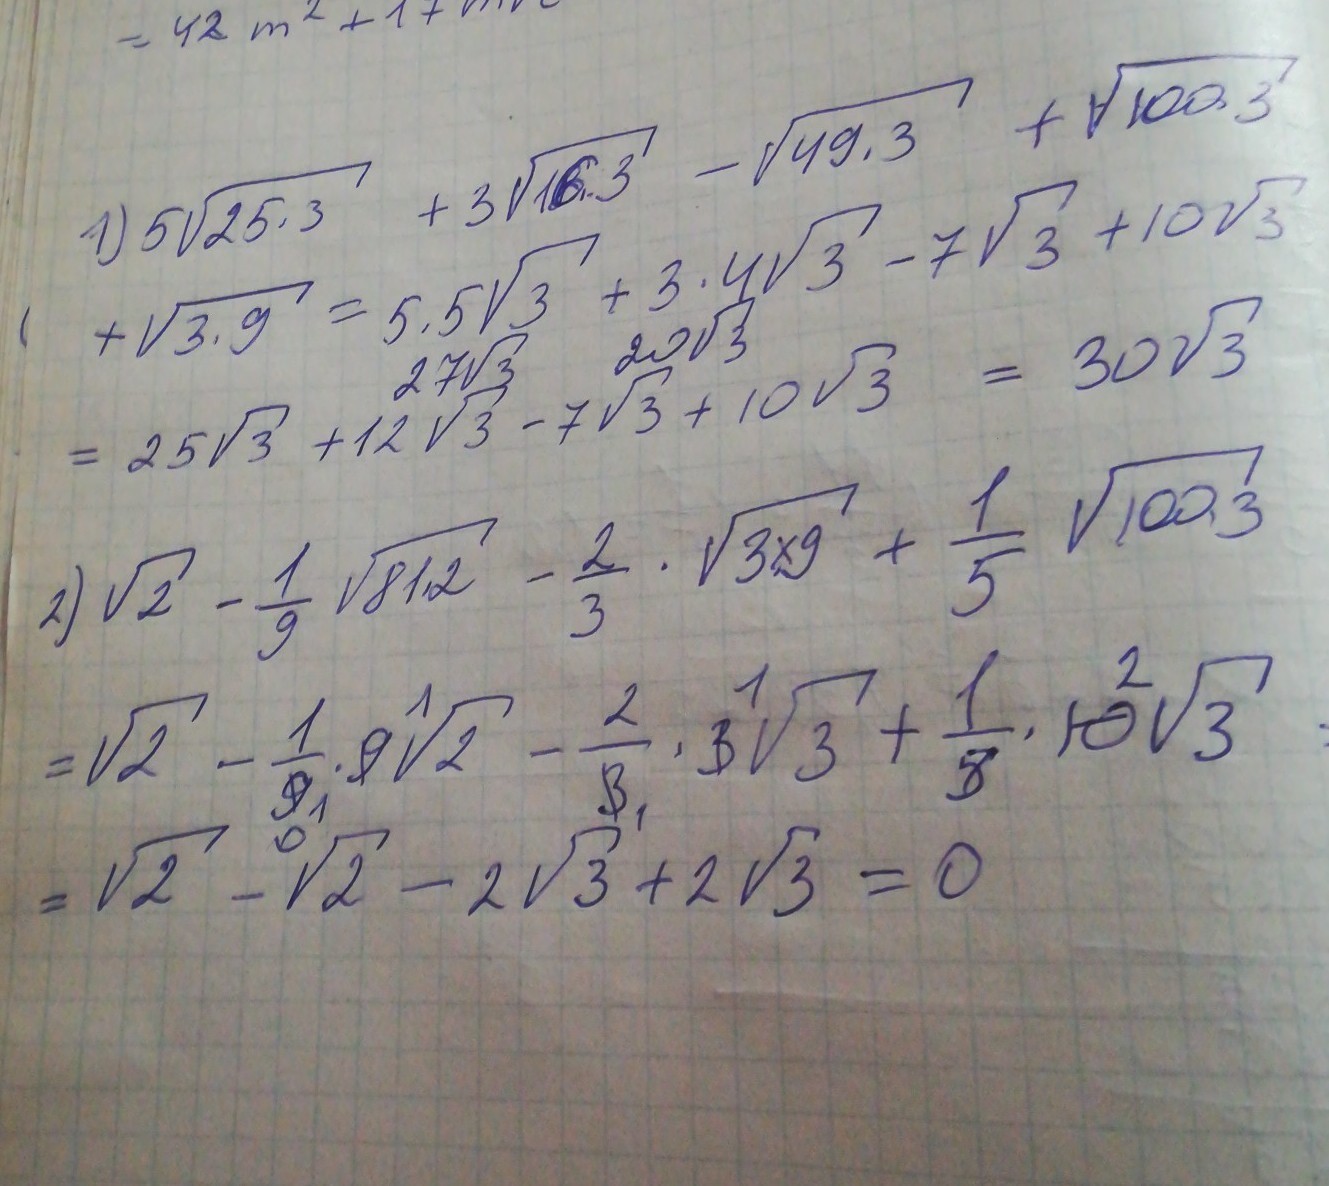 = 42 m² + 17 m
1) 5√25·3 + 3√16·3 - √49·3 + √100·3
+ √3·9 = 5·5√3 + 3·4√3 - 7√3 + 10√3
27√3 20√3
= 25√3 + 12√3 - 7√3 + 10√3 = 30√3
2) √2 - 1/9 √81·2 - 2/3 · √3×9 + 1/5 √100·3
= √2 - 1/9 · 9√2 - 2/3 · 3√3 + 1/5 · 10√3 =
= √2 - √2 - 2√3 + 2√3 = 0